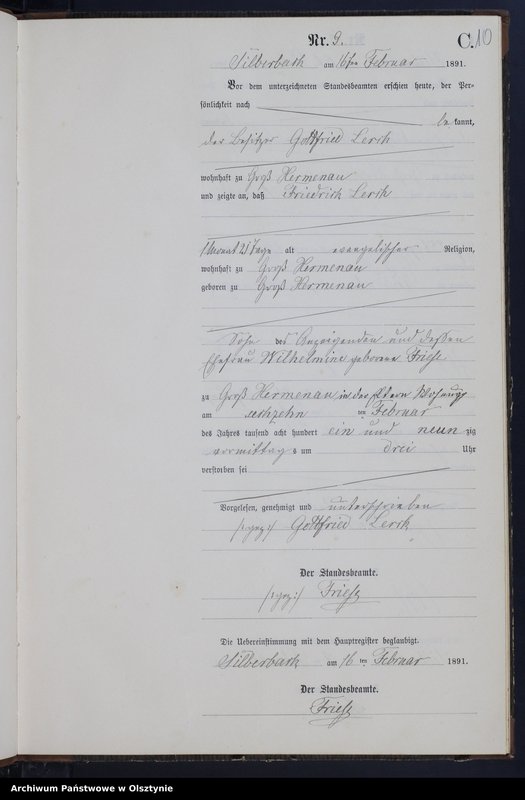 Nr. 9.
C. 10
Silberbach am 16ten Februar 1891.
Vor dem unterzeichneten Standesbeamten erschien heute, der Per-
sönlichkeit nach
be kannt,
der Besitzer Gottfried Lerch
wohnhaft zu Groß Hermenau
und zeigte an, daß Friedrich Lerch
1 Monat 21 Tage alt evangelischer Religion,
wohnhaft zu Groß Hermenau
geboren zu Groß Hermenau
Sohn des Anzeigenden und dessen
Ehefrau Wilhelmine geborene Friese
zu Groß Hermenau in der Eltern Wohnung
am sechzehn ten Februar
des Jahres tausend acht hundert ein und neun zig
vormittag s um drei Uhr
verstorben sei
Vorgelesen, genehmigt und unterschrieben
/:gez:/ Gottfried Lerch
Der Standesbeamte.
/:gez:/ Friese
Die Uebereinstimmung mit dem Hauptregister beglaubigt.
Silberbach am 16 ten Februar 1891.
Der Standesbeamte.
Friese
Archiwum Państwowe w Olsztynie